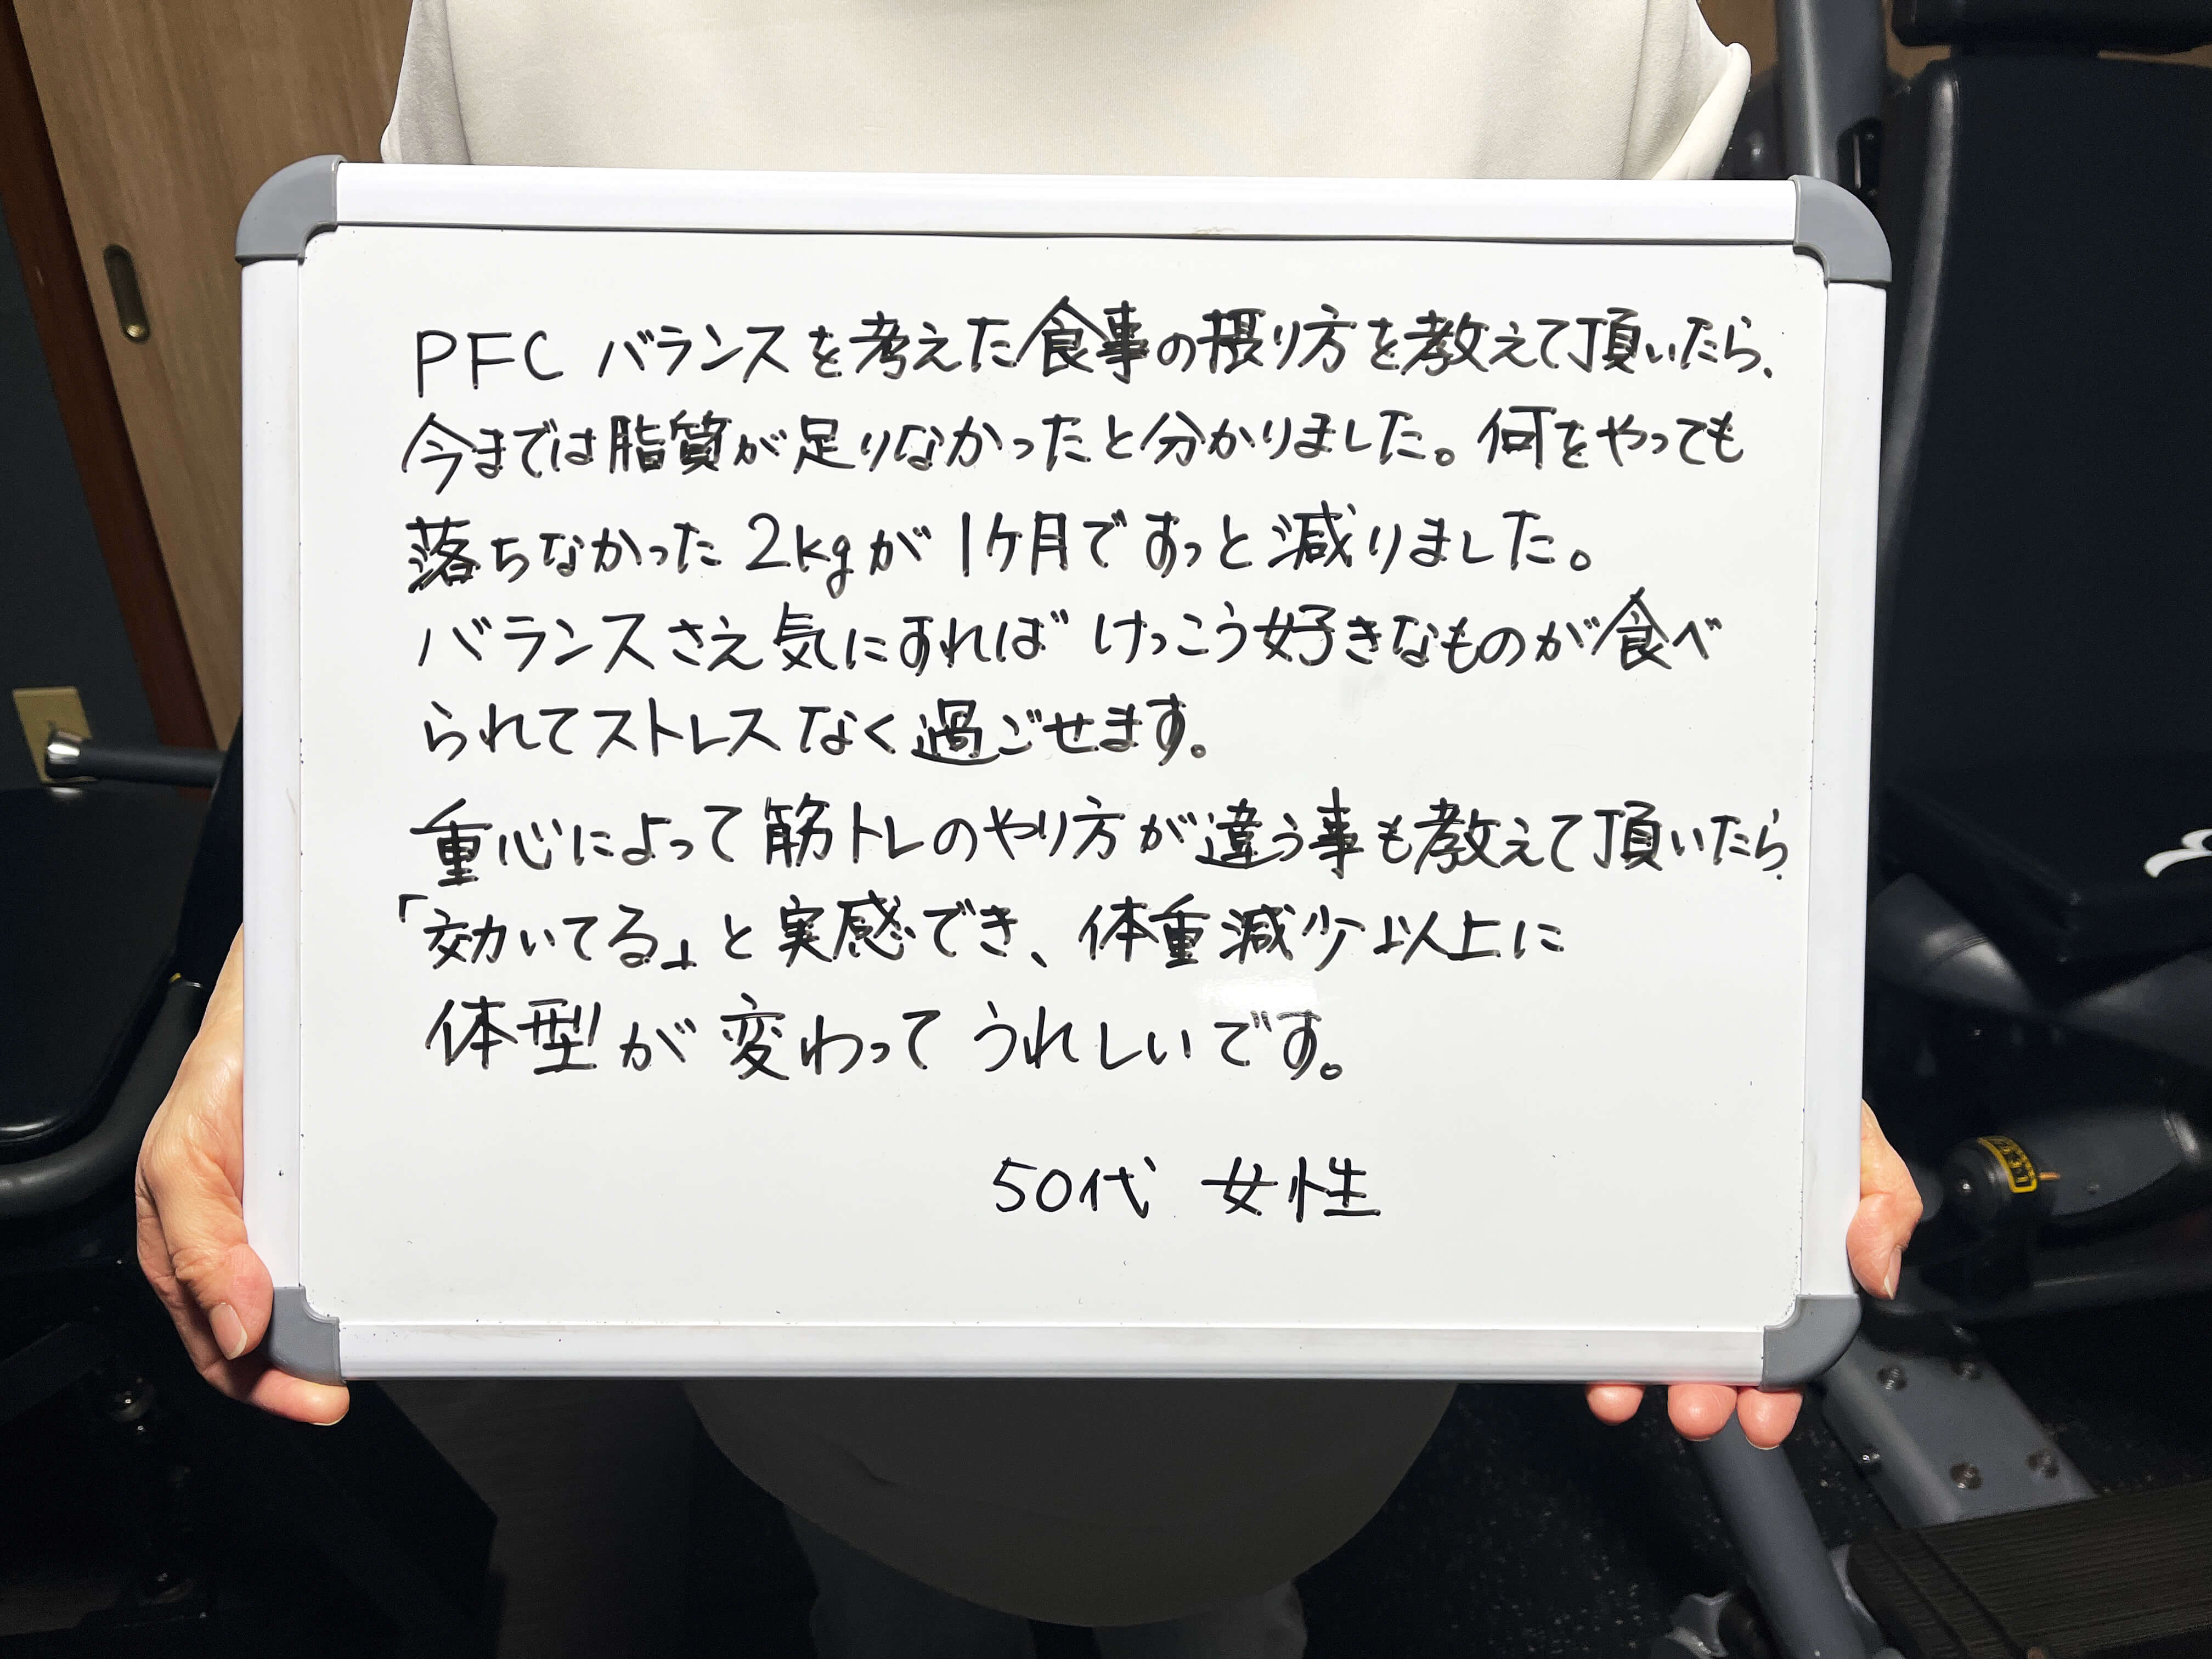 PFCバランスを考えた食事の摂り方を教えて頂いたら、
今までは脂質が足りなかったと分かりました。何をやっても
落ちなかった2kgが1ケ月ですっと減りました。
バランスさえ気にすればけっこう好きなものが食べ
られてストレスなく過ごせます。
重心によって筋トレのやり方が違う事も教えて頂いたら、
「効いてる」と実感でき、体重減少以上に
体型が変わってうれしいです。
50代 女性